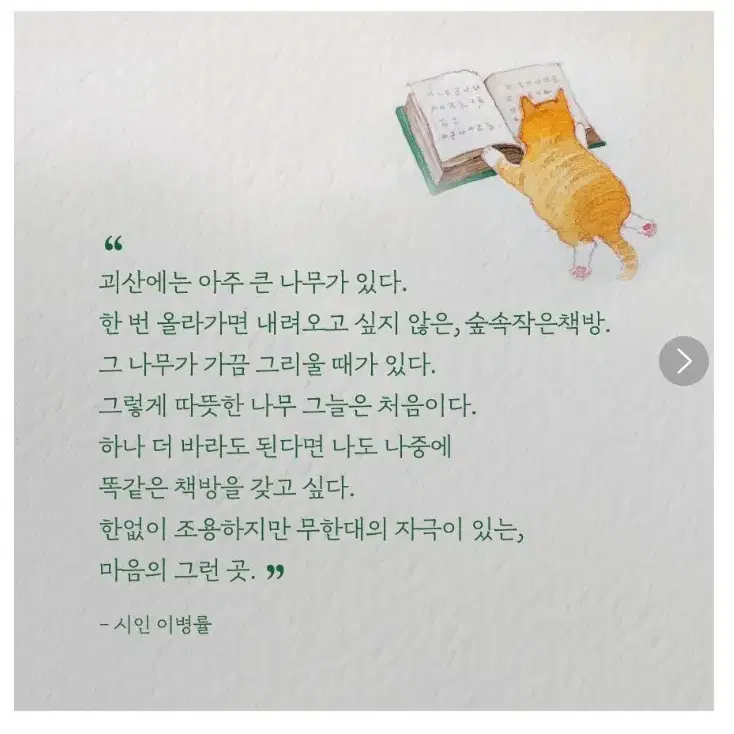 “
괴산에는 아주 큰 나무가 있다.
한 번 올라가면 내려오고 싶지 않은, 숲속작은책방.
그 나무가 가끔 그리울 때가 있다.
그렇게 따뜻한 나무 그늘은 처음이다.
하나 더 바라도 된다면 나도 나중에
똑같은 책방을 갖고 싶다.
한없이 조용하지만 무한대의 자극이 있는,
마음의 그런 곳. ”
- 시인 이병률